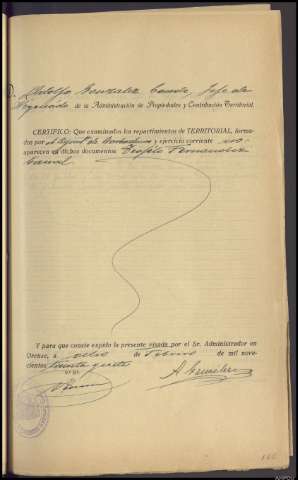 D. Adolfo Gonzalez Conde, Jefe de
Negociado de la Administración de Propiedades y Contribución Territorial.
CERTIFICO: Que examinados los repartimientos de TERRITORIAL, forma-
dos por el Ayunt. de y ejercicio corriente no
aparece en dichos documentos Fernandez
Y para que conste expido la presente visada por el Sr. Administrador en
Orense, a ocho de Febrero de mil nove-
cientos treinta y siete
V.º B.º
A. Gonzalez